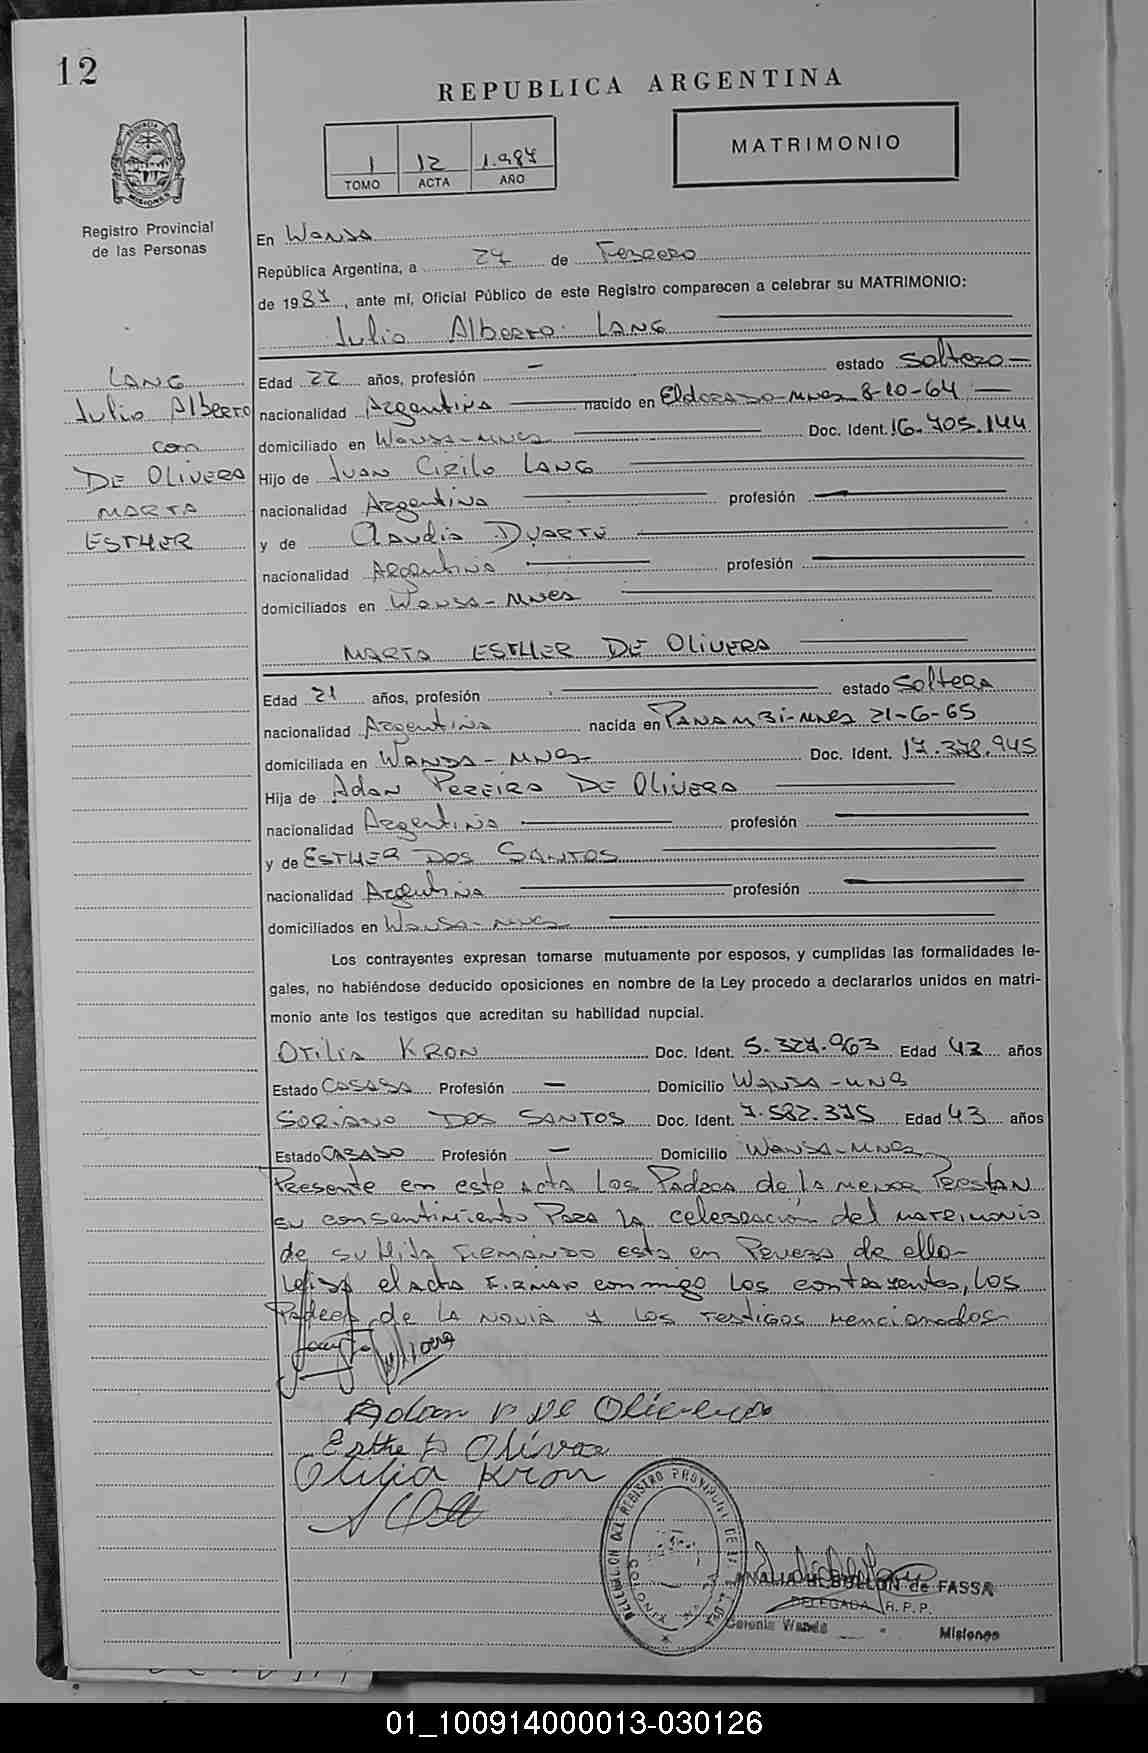 12
REPUBLICA ARGENTINA
MATRIMONIO
1 12 1.987
TOMO ACTA AÑO
PROVINCIA DE
MISIONES
Registro Provincial
de las Personas
LANG
Julio Alberto
con
DE OLIVERA
MARTA
ESTHER
En Wanda
República Argentina, a 27 de Febrero
de 1987, ante mí, Oficial Público de este Registro comparecen a celebrar su MATRIMONIO:
Julio Alberto LANG
Edad 22 años, profesión — estado soltero —
nacionalidad Argentina nacido en Eldorado-Mnes 8-10-64 —
domiciliado en Wanda-Mnes Doc. Ident. 16.705.144
Hijo de Juan Cirilo LANG
nacionalidad Argentina profesión
y de Claudia Duarte
nacionalidad Argentina profesión
domiciliados en Wanda-Mnes
MARTA ESTHER DE OLIVERA
Edad 21 años, profesión estado Soltera
nacionalidad Argentina nacida en Panambi-Mnes 21-6-65
domiciliada en Wanda-Mnes Doc. Ident. 17.378.945
Hija de Adan Pereira DE OLIVERA
nacionalidad Argentina profesión
y de ESTHER DOS SANTOS
nacionalidad Argentina profesión
domiciliados en Wanda-Mnes
Los contrayentes expresan tomarse mutuamente por esposos, y cumplidas las formalidades le-
gales, no habiéndose deducido oposiciones en nombre de la Ley procedo a declararlos unidos en matri-
monio ante los testigos que acreditan su habilidad nupcial.
OTILIA KRON Doc. Ident. 5.327.963 Edad 42 años
Estado Casada Profesión — Domicilio Wanda-Mns
SORIANO DOS SANTOS Doc. Ident. 7.582.375 Edad 43 años
Estado CASADO Profesión — Domicilio Wanda-Mnes
Presente en este acta los Padres de la menor Prestan
su consentimiento Para la celebracion del matrimonio
de su Hija Firmando esta en Prueba de ello-
Leida el acta Firman conmigo los contrayentes, los
Padres de la novia y los testigos mencionados-
Adan P de Olivera
Esthe D Olivera
Otilia Kron
DELEGACION DEL REGISTRO PROVINCIAL DE LAS
COLONIA WANDA
de FASSA
DELEGADA R.P.P.
Colonia Wanda Misiones
01_100914000013-030126